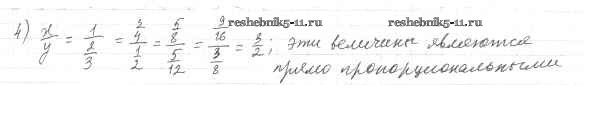 4) x/y = 1/(2/3) = (3/4)/(1/2) = (5/8)/(5/12) = (9/16)/(3/8) = 3/2; эти величины являются
прямо пропорциональными
reshebnik5-11.ru reshebnik5-11.ru